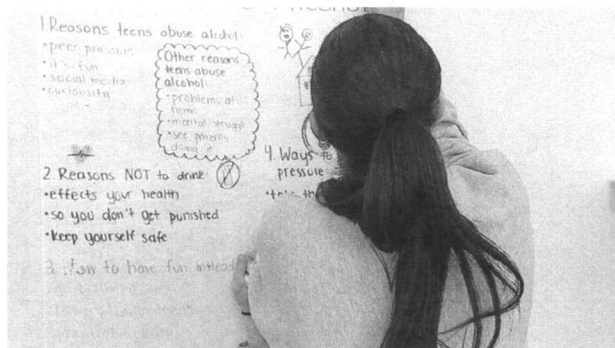 1 Reasons teens abuse alcohol:
•peer pressure
•it's fun
•social media
•curiousity
Other reasons
teens abuse
alcohol:
•problems at
home
•mental struggles
•see parents
doing it
2. Reasons NOT to drink:
•effects your health
•so you don't get punished
•keep yourself safe
3. How to have fun instead
4. Ways to
pressure